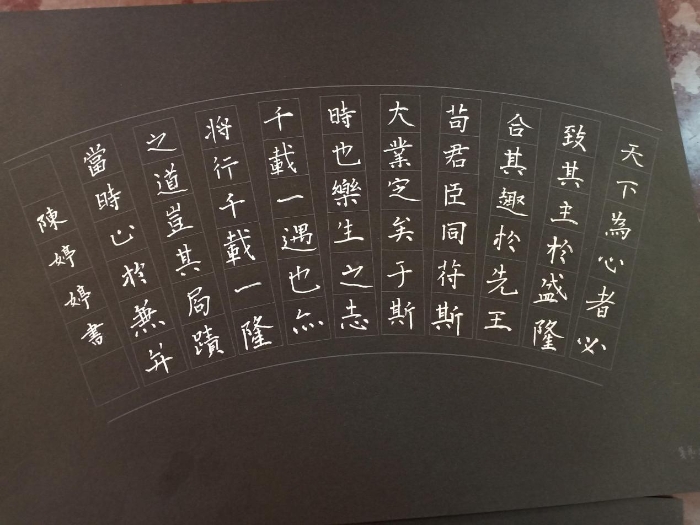 天下為心者必
致其主於盛隆
合其趣於先王
苟君臣同符斯
大業定矣于斯
時也樂生之志
千載一遇也亦
將行千載一隆
之道豈其局蹟
當時心於兼并
陳婷婷書